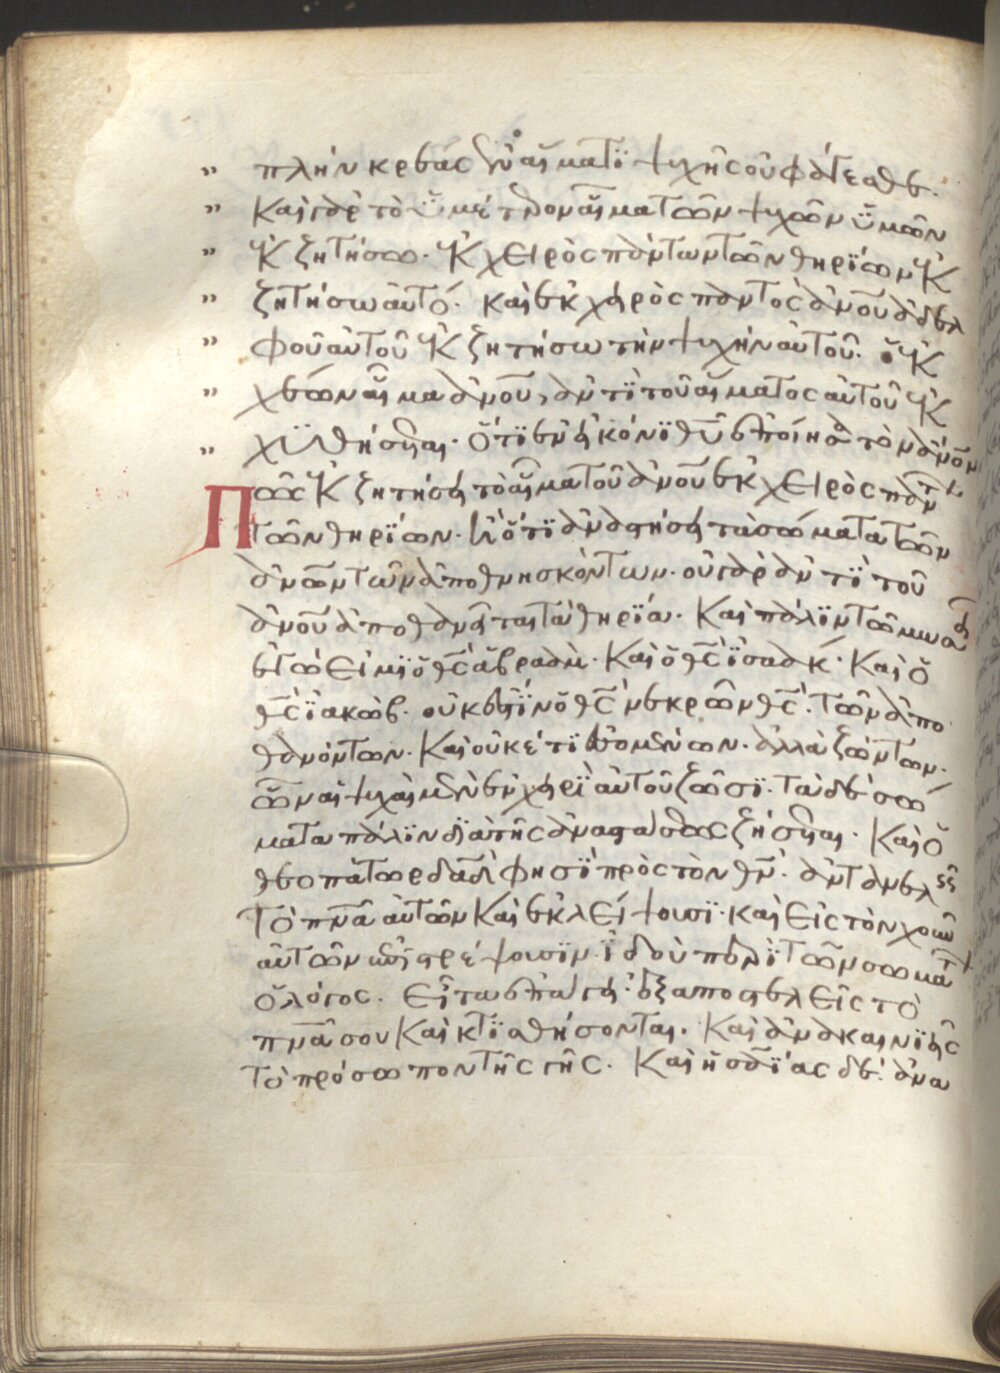 πλὴν κρέας ἐν αἵματϊ ψυχῆς οὐ φάγεσθε·
Καὶ γὰρ τὸ ϋμέτερον αἷμα τῶν ψυχῶν ϋμῶν
ἐκζητήσω· ἐκ χειρὸς πάντων τῶν θηρϊων ἐκ
ζητήσω αὐτό· καὶ ἐκ χειρὸς παντὸς ἀνου ἀδελ
φοῦ αὐτοῦ ἐκζητήσω τὴν ψυχὴν αὐτοῦ· ὁ ἐκ
χέων αἷμα ἀνου, ἀντὶ τοῦ αἵματος αὐτοῦ ἐκ
χϋθήσεται· ὅτϊ ἐν εἰκόνϊ θυ ἐποίησα τὸν ἀνον
Πῶς ἐκζητήσει τὸ αἷμα τοῦ ἀνου ἐκ χειρὸς πάντ
τῶν θηρϊων· ἢ ὅτϊ ἀναστήσει τὰ σώματα τῶν
ἀνων τῶν ἀποθνησκόντων· οὐ γὰρ ἀντϊ τοῦ
ἀνου ἀποθανεῖται τὰ θηρϊα· Καὶ πάλϊν τῶ μωσῆ
ἐγώ εἰμϊ ὁ θς ἀβραάμ· Καὶ ὁ θς ϊσαάκ· Καὶ ὁ
θς ϊακώβ· οὐκ ἔστϊν ὁ θς νεκρῶν θς· τῶν ἀπο
θανόντων· Καὶ οὐκέτϊ ἐσομένων· ἀλλὰ ζώντων·
ὧν αἱ ψυχαὶ μὲν ἐν χειρϊ αὐτοῦ ζῶσϊ· τὰ δὲ σώ
ματα πάλϊν δϊὰ τῆς ἀναστάσεως ζήσεται· Καὶ ὁ
θεοπάτωρ δαδ φησϊ πρὸς τὸν θν· ἀντανελεῖς
τὸ πνα αὐτῶν Καὶ ἐκλείψουσϊ· καὶ εἰς τὸν χοῦν
αὐτῶν ἐπιστρέψουσϊν· ϊδοὺ περὶ τῶν σωμάτ
ὁ λόγος· Εἶτα ἐπάγει· ἐξαποστελεῖς τὸ
πνα σου Καὶ κτϊσθήσονται· Καὶ ἀνακαινϊεῖς
τὸ πρόσωπον τῆς γῆς· Καὶ ἡσαΐας δέ· ἀνα